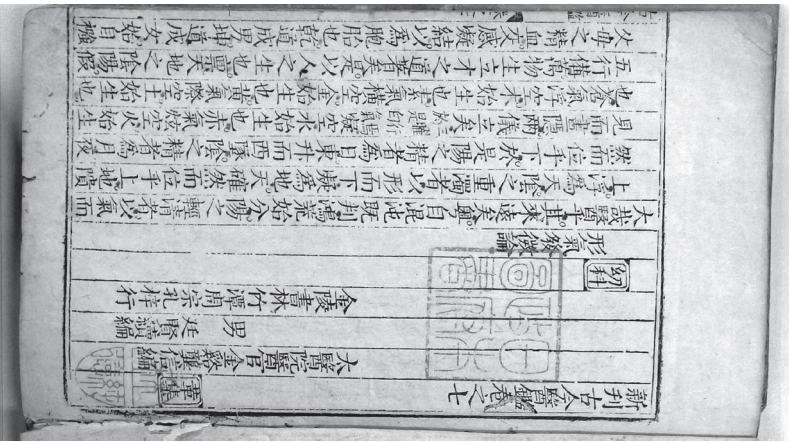 新刊古今醫鑑卷之七
太醫院醫官金谿龔信編
男　廷賢續編
金陵書林竹潭周宗孔梓行
幼科
形氣發微論
大哉醫乎其來遠矣粵自混沌既判鴻荒始分陽之輕清者以氣而
上浮為天陰之重濁者以形而下凝為地天確然而位乎上地隤
然而位乎下於是陽之精者為日東升而西墜陰之精者為月夜
見而晝隱兩儀立矣二曜行焉玄氣凝空水始生也赤氣炫空火始生
也蒼氣浮空木始生也素氣橫空金始生也黃氣際空土始生也
五行備萬物生三才之道著矣是以人之生也稟天地之陰陽假
父母之精血交感凝結以為胞胎也乾道成男坤道成女始自襁